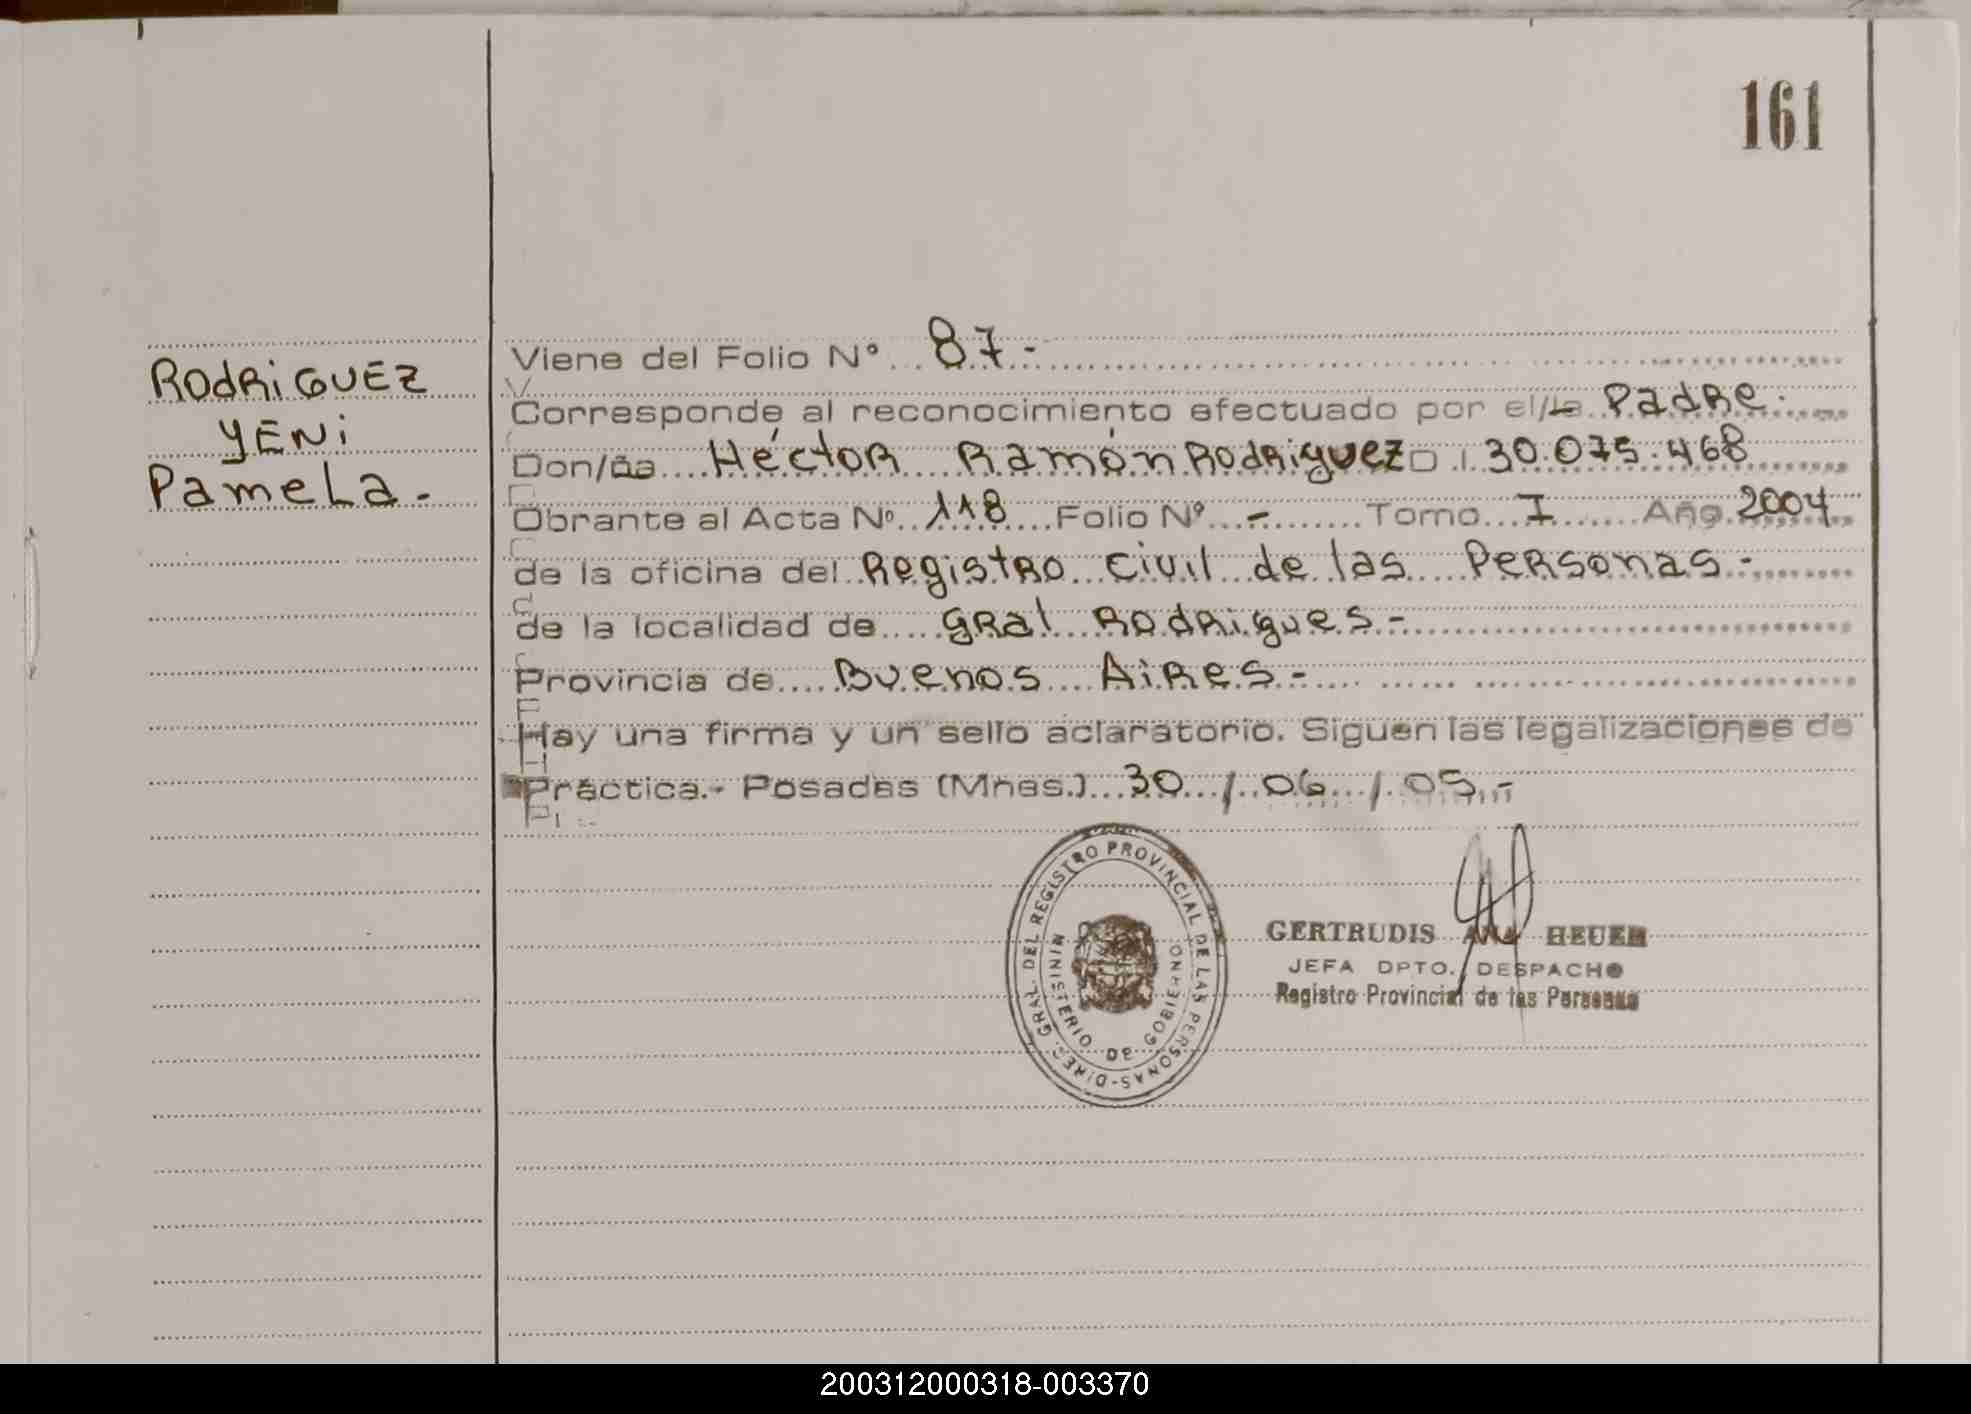 161
RODRIGUEZ
YENI
PAMELA.-
Viene del Folio Nº ... 87.-
Corresponde al reconocimiento efectuado por el/la Padre.
Don/ña Héctor Ramón Rodriguez D.I. 30.075.468
Obrante al Acta Nº 118 Folio Nº - Tomo I Año 2004
de la oficina del Registro Civil de las Personas.-
de la localidad de Gral Rodrigues.-
Provincia de Buenos Aires.-
Hay una firma y un sello aclaratorio. Siguen las legalizaciones de
Práctica.- Posadas (Mnes.) 30 / 06 / 05.-
DIREC. GRAL. DEL REGISTRO PROVINCIAL DE LAS PERSONAS-
MINISTERIO DE GOBIERNO
GERTRUDIS ANA HEUER
JEFA DPTO. DESPACHO
Registro Provincial de las Personas
200312000318-003370